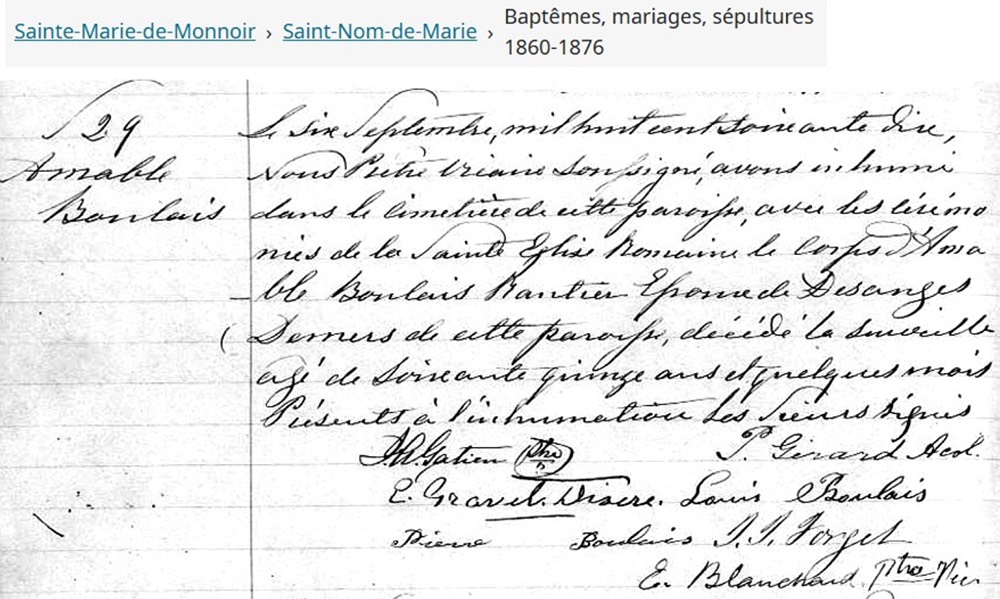 Sainte-Marie-de-Monnoir › Saint-Nom-de-Marie › Baptêmes, mariages, sépultures
1860-1876
S 29
Amable
Boulais
Le six Septembre, mil huit cent soixante dix,
Nous Prêtre Vicaire Soussigné, avons inhumé
dans le Cimetière de cette paroisse, avec les cérémo
nies de la Sainte Eglise Romaine le Corps d'Ama
ble Boulais Rantier Epoux de Desanges
Demers de cette paroisse, décédé la surveille
agé de Soixante quinze ans et quelques mois
Présents à l'inhumation les Sieurs Signés
Gatien Ptre P. Girard Acol.
E. Gravel. Louis Boulais
Pierre Boulais J. J. Forget
E. Blanchard Ptre Vic